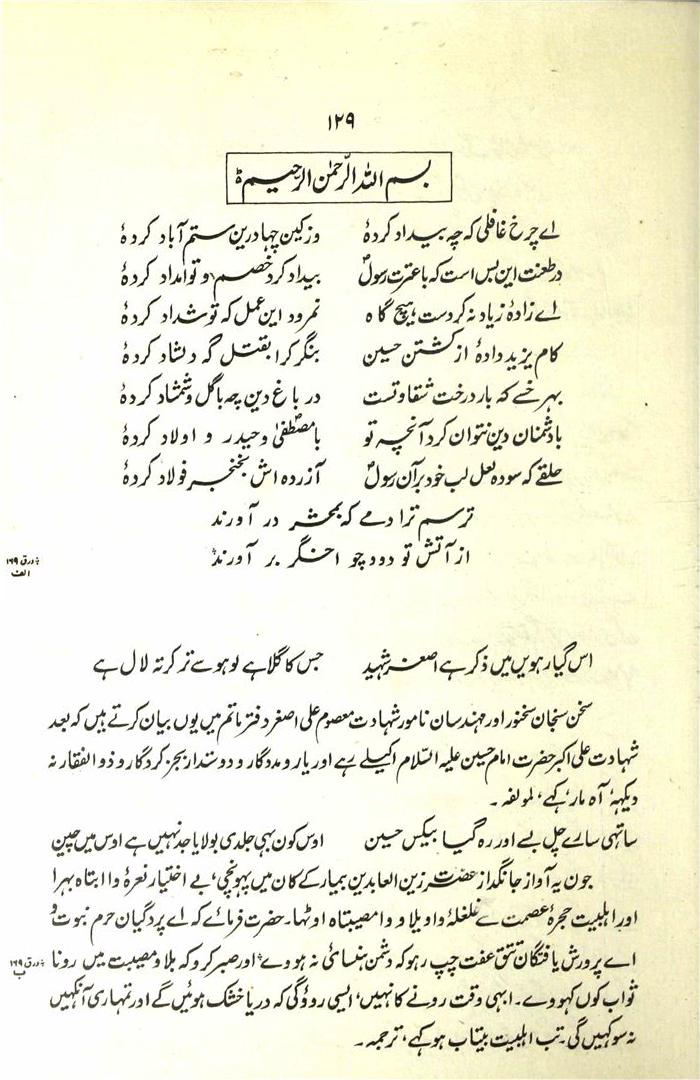 ۱۲۹
بسم اللہ الرّحمٰن الرحیم ۃ
اے چرخ غافلی کہ چہ بیداد کردۂ وز کین چہا درین ستم آباد کردۂ
در طعنت این بس است کہ باعترت رسولؐ بیداد کرد خصم و تو امداد کردۂ
اے زادۂ زیاد نہ کردست ہیچ گاہ نمرود این عمل کہ تو شداد کردۂ
کام یزید دادۂ از کشتن حسین بنگر کرا بقتل گہ دلشاد کردۂ
بہر خسے کہ بار درخت شقاوتست در باغ دین چہ باگل و شمشاد کردۂ
با دشمنان دین نتوان کرد آنچہ تو با مصطفیٰؐ و حیدر و اولاد کردۂ
حلقے کہ سودہ لعل لب خود برآن رسولؐ آزردہ اش بخنجر فولاد کردۂ
ترسم ترا دمے کہ بمحشر در آورند
از آتش تو دود چو اخگر بر آورند
ورق ۱۶۹ الف
اس گیارھویں میں ذکر ہے اصغر شہید جس کا گلا ہے لوہو سے تر کرتہ لال ہے
سخن سنجان سخنور اور مہندسان نامور شہادت معصوم علی اصغر دفتر ماتم میں یوں بیان کرتے ہیں کہ بعد
شہادت علی اکبر حضرت امام حسین علیہ السّلام اکیلے ہے اور یار و مددگار و دوستدار بجز کردگار و ذوالفقار نہ
دیکھہ، آہ مار، کہے، لمولفہ ۔
ساتھی سارے چل بسے اور رہ گیا بیکس حسین اوس کون بہی جلدی بولا یا جد نہیں ہے اوس میں چین
جون یہ آواز جانگداز حضرت زین العابدین بیمار کے کان میں پہونچی، بے اختیار نعرۂ وا ابتاہ بہرا
اور اہلبیت حجرۂ عصمت سے غلغلۂ واویلا و وا مصیبتاہ اوٹھا۔ حضرت فرمائے کہ اے پردگیان حرم نبوت و
اے پرورش یافتگان تتق عفت چپ رہو کہ دشمن ہنسائی نہ ہووے اور صبر کرو کہ بلا و مصیبت میں رونا
ورق ۱۶۹ ب
ثواب کوں کہووے۔ ابہی وقت رونے کا نہیں، ایسی روؤگی کہ دریا خشک ہوئیں گے اور تمہاری آنکہیں
نہ سوکہیں گی۔ تب اہلبیت بیتاب ہو کہے، ترجمہ ۔